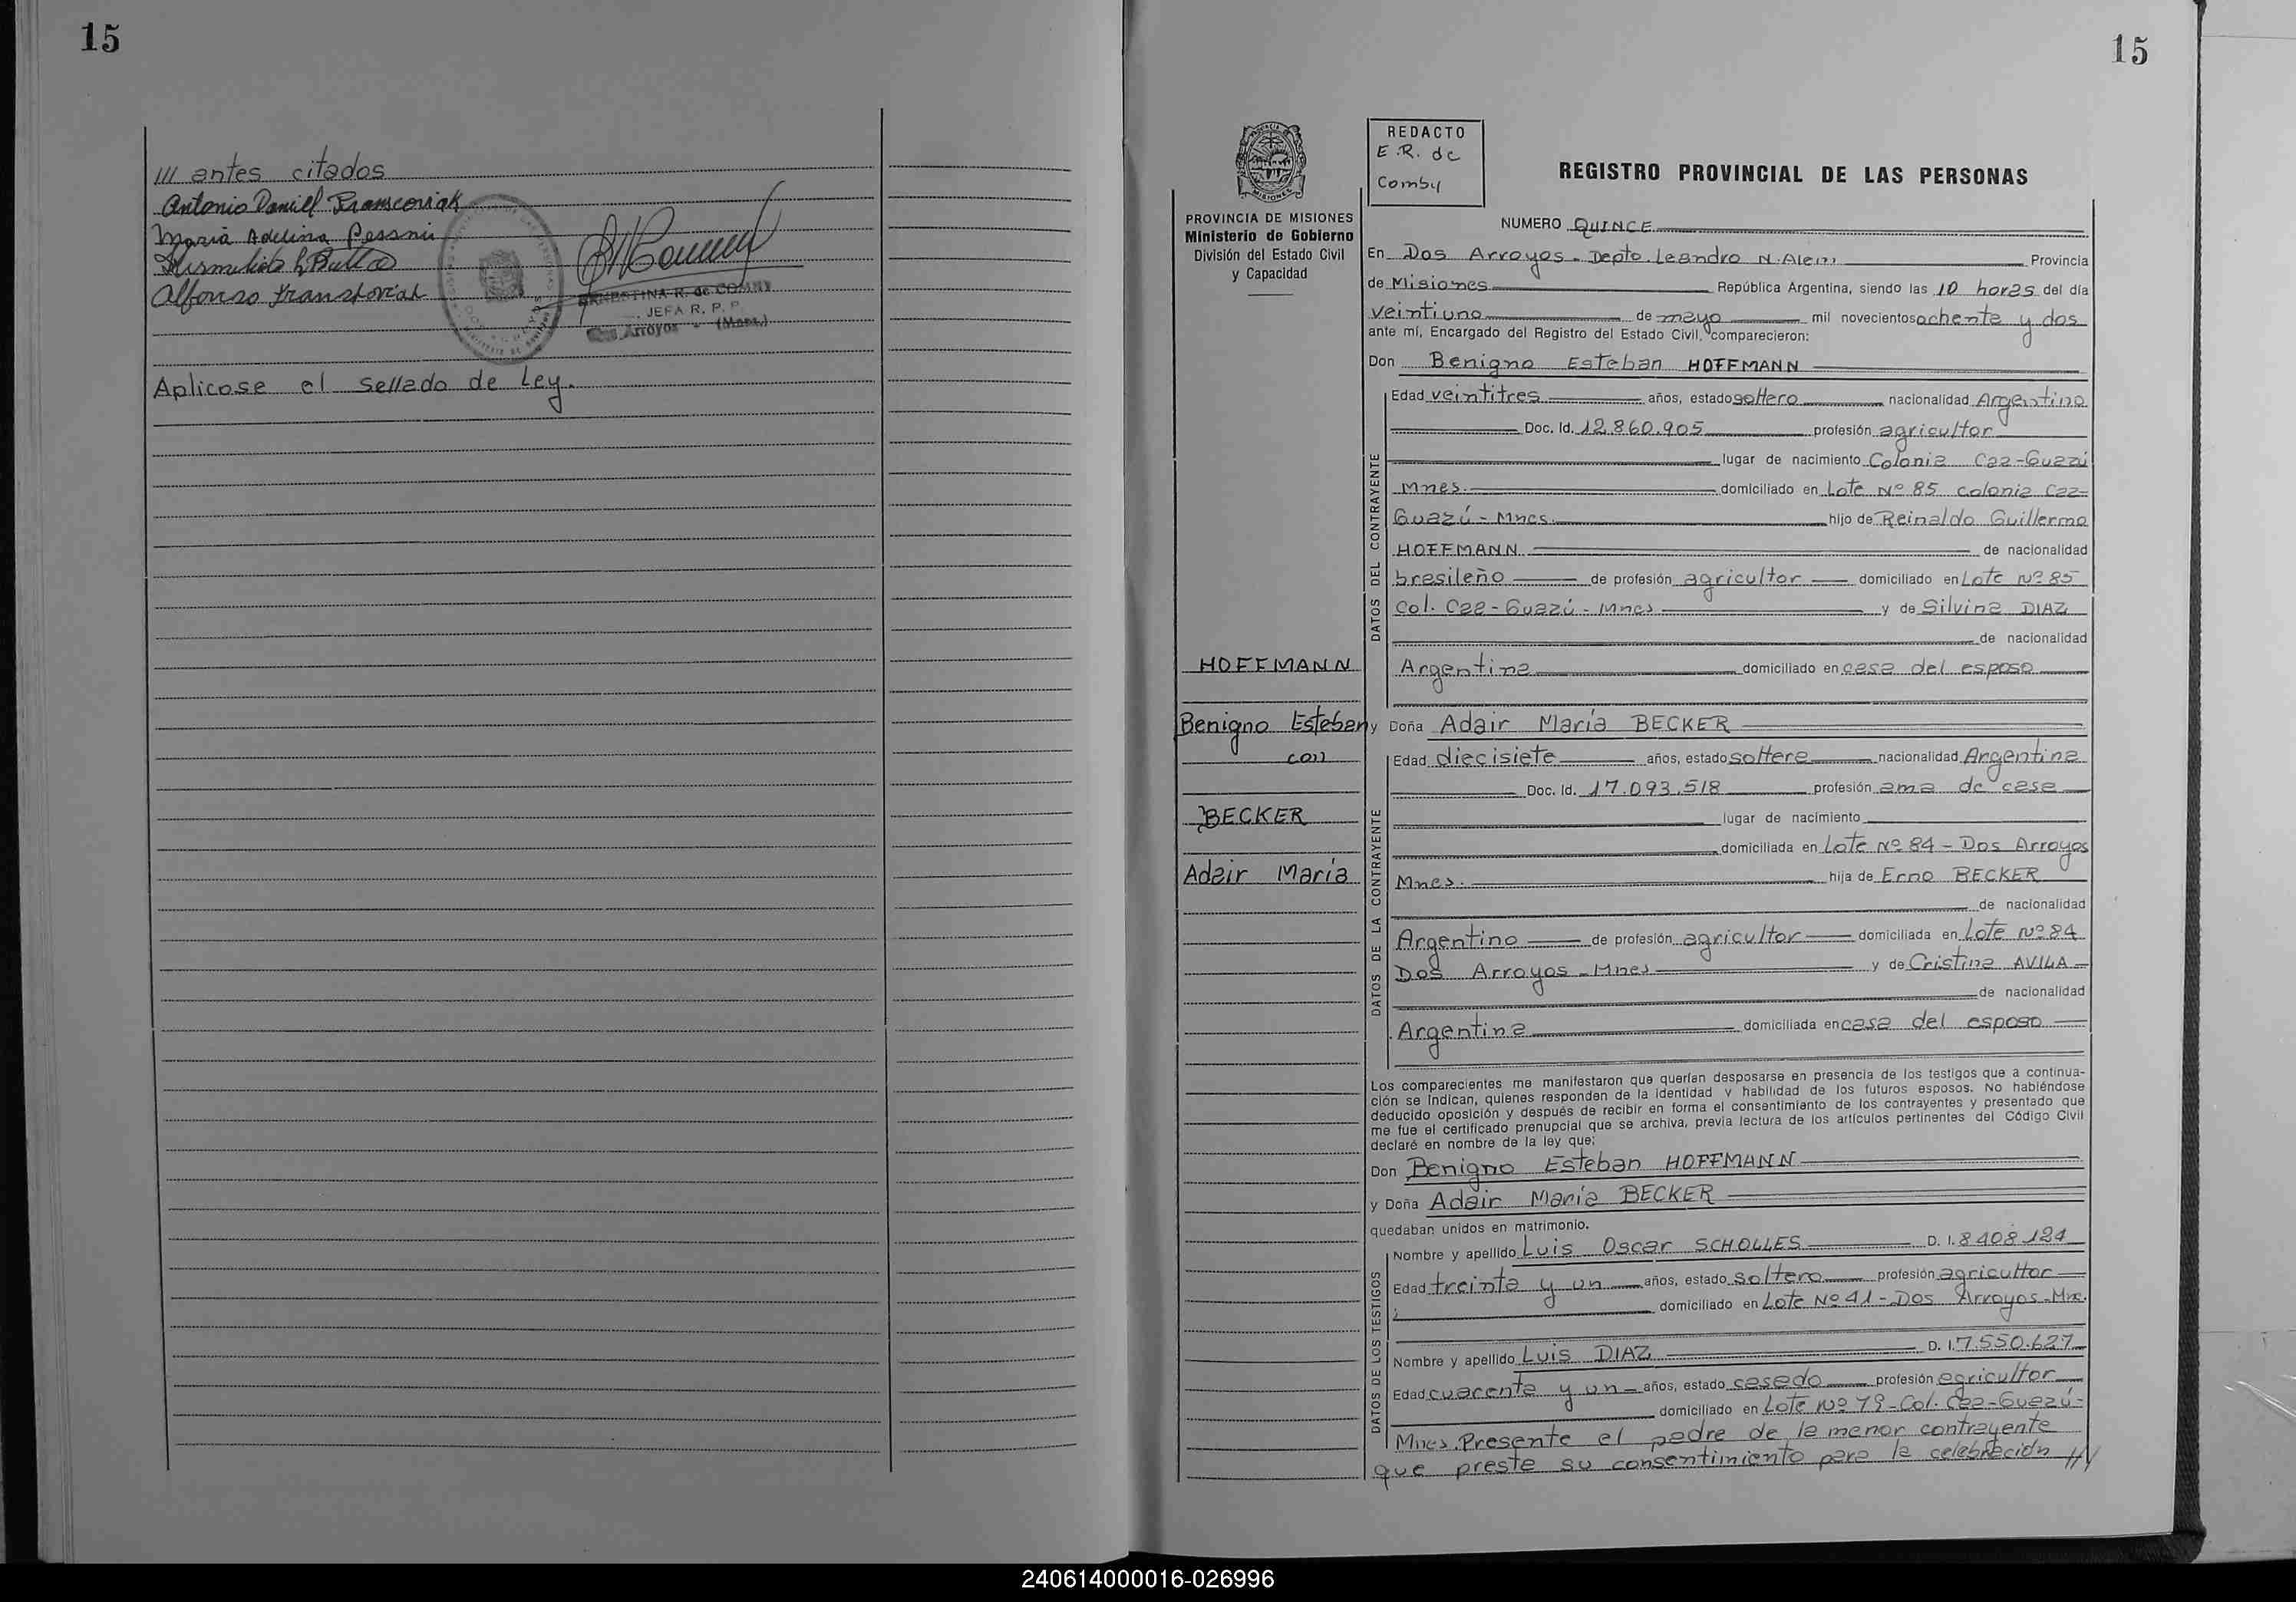 15
/// antes citados
Antonio Daniel
María Adelina
Alfonso
ERNESTINA R. de COMBY
JEFA R. P. P.
Dos Arroyos - (Mnes.)
Aplicose el sellado de Ley.
15
REDACTO
E.R. de
Comby
REGISTRO PROVINCIAL DE LAS PERSONAS
PROVINCIA DE MISIONES
Ministerio de Gobierno
División del Estado Civil
y Capacidad
NUMERO QUINCE
En Dos Arroyos - Depto. Leandro N. Alem Provincia
de Misiones República Argentina, siendo las 10 horas del día
veintiuno de mayo mil novecientos ochenta y dos
ante mí, Encargado del Registro del Estado Civil, comparecieron:
Don Benigno Esteban HOFFMANN
DATOS DEL CONTRAYENTE
Edad veintitres años, estado soltero nacionalidad Argentino
Doc. Id. 12.860.905 profesión agricultor
lugar de nacimiento Colonia Caa-Guazú
Mnes. domiciliado en Lote Nº 85 colonia Caa-
Guazú - Mnes. hijo de Reinaldo Guillermo
HOFFMANN de nacionalidad
brasileño de profesión agricultor domiciliado en Lote Nº 85
Col. Caa-Guazú - Mnes y de Silvina DIAZ
de nacionalidad
Argentina domiciliado en casa del esposo
HOFFMANN
Benigno Esteban
con
BECKER
Adair María
y Doña Adair María BECKER
DATOS DE LA CONTRAYENTE
Edad diecisiete años, estado soltera nacionalidad Argentina
Doc. Id. 17.093.518 profesión ama de casa
lugar de nacimiento
domiciliada en Lote Nº 84 - Dos Arroyos
Mnes. hija de Erno BECKER
de nacionalidad
Argentino de profesión agricultor domiciliada en Lote Nº 84
Dos Arroyos - Mnes y de Cristina AVILA
de nacionalidad
Argentina domiciliada en casa del esposo
Los comparecientes me manifestaron que querían desposarse en presencia de los testigos que a continua-
ción se indican, quienes responden de la identidad y habilidad de los futuros esposos. No habiéndose
deducido oposición y después de recibir en forma el consentimiento de los contrayentes y presentado que
me fue el certificado prenupcial que se archiva, previa lectura de los artículos pertinentes del Código Civil
declaré en nombre de la ley que:
Don Benigno Esteban HOFFMANN
y Doña Adair María BECKER
quedaban unidos en matrimonio.
DATOS DE LOS TESTIGOS
Nombre y apellido Luis Oscar SCHOLLES D. I. 8408124
Edad treinta y un años, estado soltero profesión agricultor
domiciliado en Lote Nº 41 - Dos Arroyos - Mnes.
Nombre y apellido Luis DIAZ D. I. 7.550.627
Edad cuarenta y un años, estado casado profesión agricultor
domiciliado en Lote Nº 79 - Col. Caa-Guazú -
Mnes. Presente el padre de la menor contrayente
que preste su consentimiento para la celebración ///
240614000016-026996